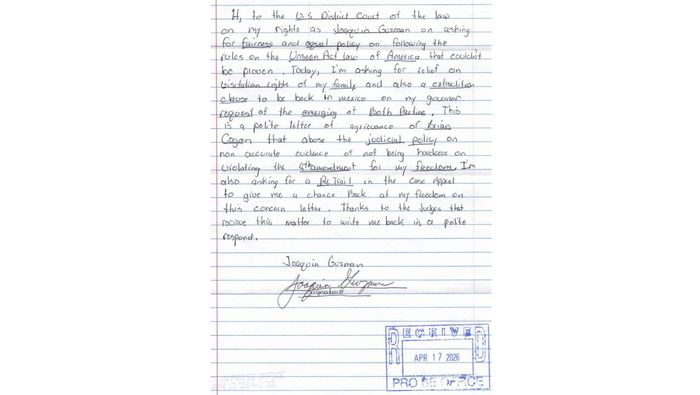 Hi, to the U.S District Court of the law
on my rights as Joaquin Guzman on asking
for fairness and equal policy on following the
rules on the Unseen Act law of America that couldn't
be proven. Today, I'm asking for relief on
visitation rights of my family and also a extradition
clause to be back in mexico on my governor
request of the emerging of Both Parties. This
is a polite letter of agrievance of Brian
Cogan that abuse the judicial policy on
non accurate evidence of not being on
violating the 5thamendment for my freedom, I'm
also asking for a Re Trail in the Case Appeal
to give me a chance Back at my freedom on
this concern letter. Thanks to the Judges that
recieve this matter to write me back in a polite
respond.
Joaquin Guzman
Joaquin Guzman
Signature
RECEIVED
APR 17 2026
PRO SE OFFICE